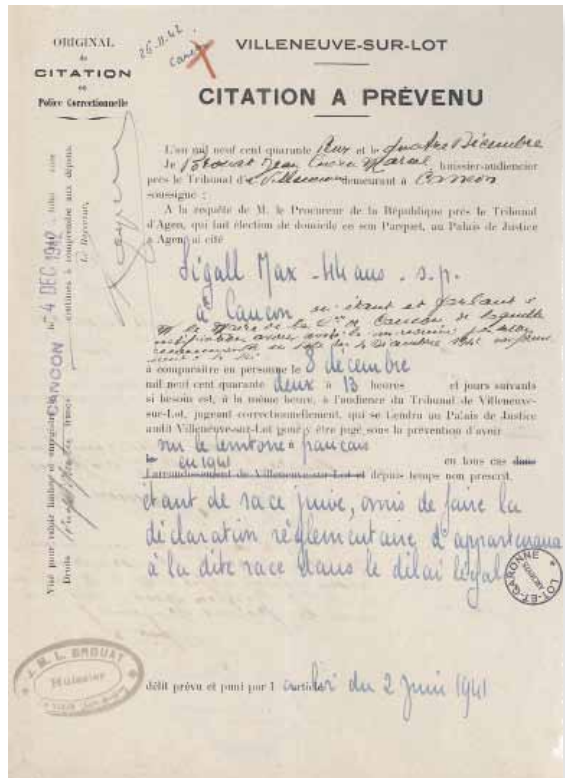 ORIGINAL
de
CITATION
en
Police Correctionnelle
26.11.42
Cancon
VILLENEUVE-SUR-LOT
CITATION A PRÉVENU
L'an mil neuf cent quarante deux et le quatre Décembre
Je Brouat Jean Marcel, huissier-audiencier
près le Tribunal de Villeneuve demeurant à Cancon
soussigné :
A la requête de M. le Procureur de la République près le Tribunal
d'Agen, qui fait élection de domicile en son Parquet, au Palais de Justice
à Agen, ai cité
Sigall Max - 44 ans - s.p.
à Cancon où étant et parlant à
M. le Maire de la Cne de Cancon
à comparaître en personne le 8 décembre
mil neuf cent quarante deux à 13 heures et jours suivants
si besoin est, à la même heure, à l'audience du Tribunal de Villeneuve-
sur-Lot, jugeant correctionnellement, qui se tiendra au Palais de Justice
audit Villeneuve-sur-Lot pour y être jugé sous la prévention d'avoir
sur le territoire français
en 1941
en tous cas dans
l'arrondissement de Villeneuve-sur-Lot et depuis temps non prescrit,
étant de race juive, omis de faire la
déclaration réglementaire d'appartenance
à la dite race dans le délai légal
délit prévu et puni par l'article loi du 2 Juin 1941
Visé pour valoir timbre et enregistré à CANCON le 4 DEC 1942
Droits
francs
centimes à comprendre aux dépens.
Le Receveur,
J. M. L. BROUAT
Huissier
LOT-ET-GARONNE
ARCHIVES